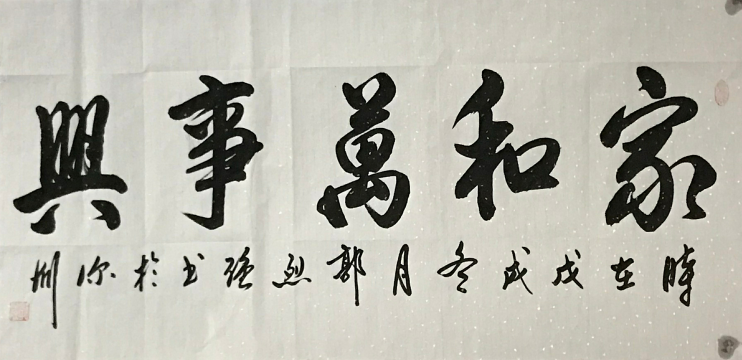 家和萬事興
時在戊戌冬月郭烈強书於深圳